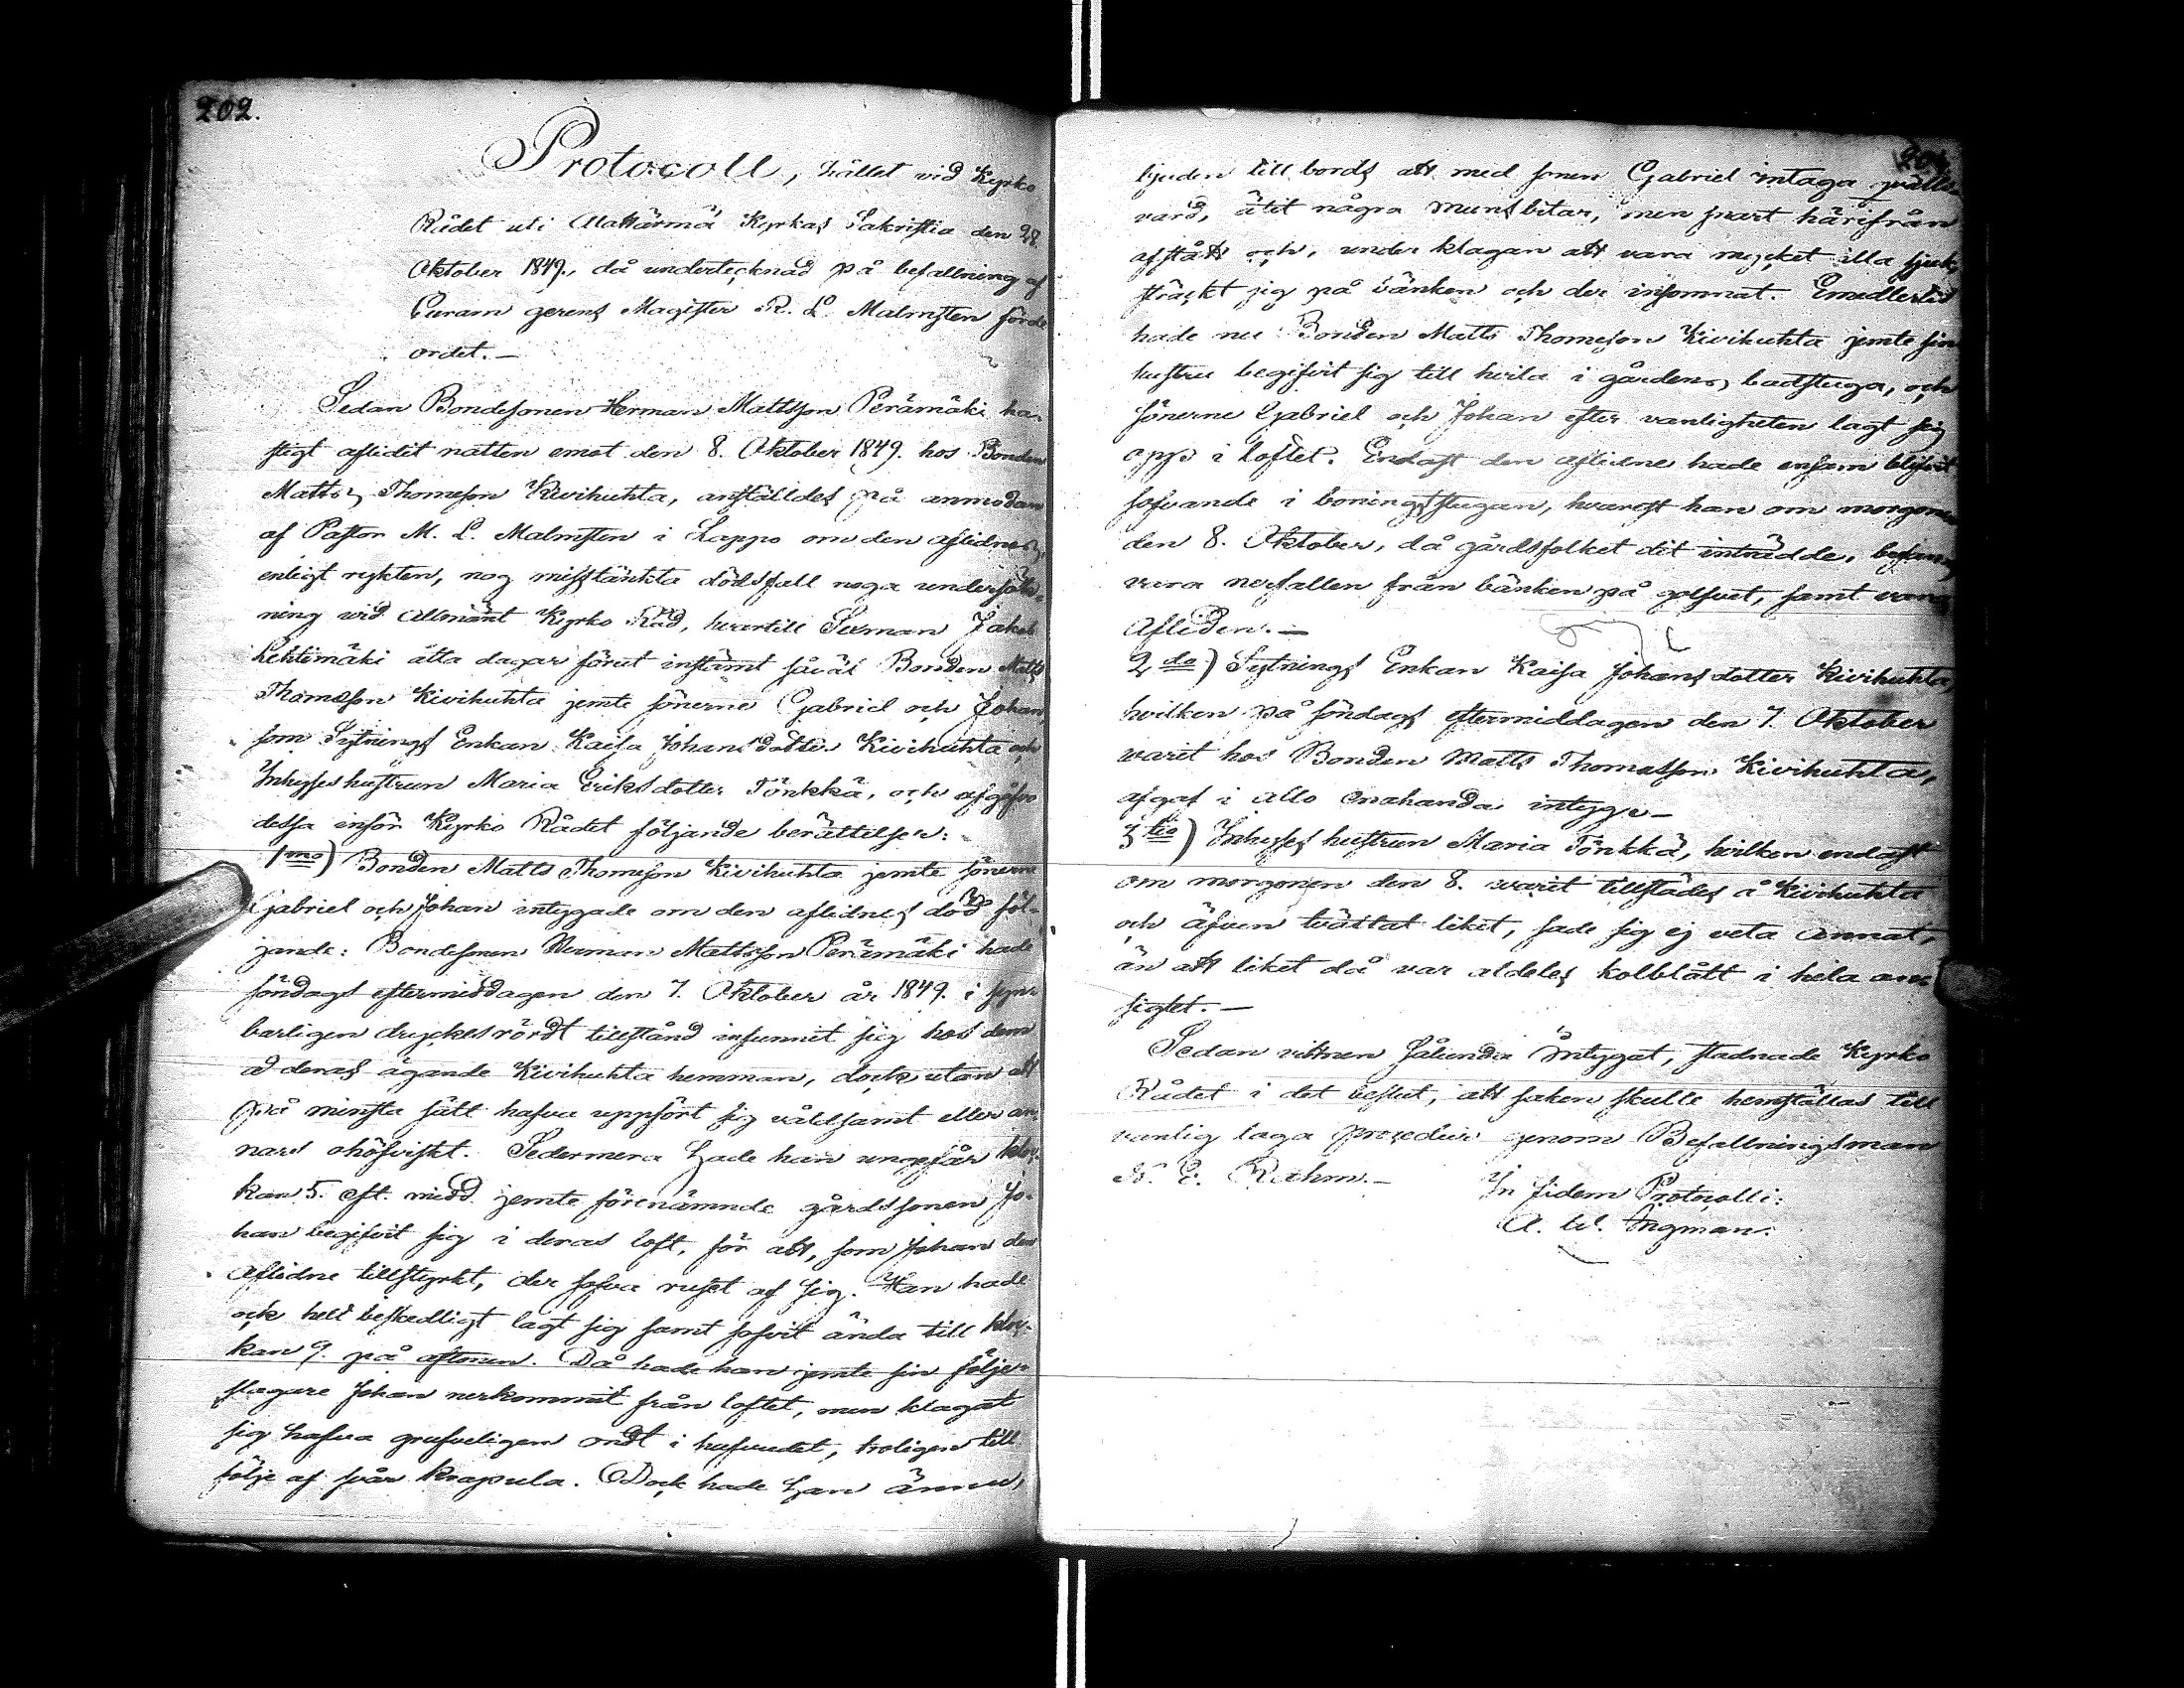 202.
Protocoll, hållet vid Kyrko
Rådet uti Alahärmä Kyrkas Sakristia den 28.
Oktober 1849., då undertecknad på befallning af
Curam gerens Magister R. L. Malmsten förde
ordet.—
Sedan Bondesonen Herman Mattsson Perämäki ha-
stigt aflidit natten emot den 8. Oktober 1849. hos Bonden
Matts Thomsson Kivihuhta, anställdes på anmodan
af Pastor M. L. Malmsten i Lappo om den aflidnes,
enligt rykten, nog misstänkta dödsfall noga undersök-
ning vid Allmänt Kyrko Råd, hvartill Sexman Jakob
Lehtimäki åtta dagar förut instämt såväl Bonden Matts
Thomasson Kivihuhta jemte sönerne Gabriel och Johan
som Sytnings Enkan Kaisa Johansdotter Kivihuhta och
Inhyses hustrun Maria Eriksdotter Tönkkä, och afgåfvo
dessa inför Kyrko Rådet följande berättelser:
1mo) Bonden Matts Thomsson Kivihuhta jemte sönerne
Gabriel och Johan intygade om den aflidnes död föl-
jande: Bondesonen Herman Mattsson Perämäki hade
söndags eftermiddagen den 7. Oktober år 1849. i syn-
barligen dryckesrördt tillstånd infunnit sig hos dem
å deras ägande Kivihuhta hemman, dock utan att
på minsta sätt hafva uppfört sig våldsamt eller an-
nars ohöfviskt. Sedermera hade han ungefär kloc-
kan 5. eft. midd jemte förenämnde gårdssonen Jo-
han begifvit sig i deras loft, för att, som Johan den
Aflidne tillstyrkt, der sofva ruset af sig. Han hade
ock helt beskedligt lagt sig samt sofvit ända till kloc-
kan 9. på aftonen. Då hade han jemte sin följe-
slagare Johan nerkommit från loftet, men klagat
sig hafva grufveligen ondt i hufvudet, troligen till
följe af svår krapula. Dock hade han ännu,
bjuden till bords att med sonen Gabriel intaga qvälls-
vard, ätit några munsbitar, men snart härifrån
afstått och, under klagan att vara mycket illa sjuk,
sträckt sig på bänken och der insomnat. Emedlertid
hade nu Bonden Matts Thomsson Kivihuhta jemte sin
hustru begifvit sig till hvila i gårdens badstuga, och
sönerne Gabriel och Johan efter vanligheten lagt sig
opp i loftet. Endast den aflidne hade ensam blifvit
sofvande i boningsstugan, hvarest han om morgonen
den 8. Oktober, då gårdsfolket dit inträdde, befanns
vara nerfallen från bänken på golfvet, samt vara
Afliden.—
2do) Sytnings Enkan Kaisa Johansdotter Kivihuhta,
hvilken på söndags eftermiddagen den 7. Oktober
varit hos Bonden Matts Thomasson Kivihuhta,
afgaf i allo enahanda intyg.—
3tio) Inhyses hustrun Maria Tönkkä, hvilken endast
om morgonen den 8. varit tillstädes å Kivihuhta
och äfven tvättat liket, sade sig ej veta annat,
än att liket då var aldeles kolblått i hela an-
sigtet.—
Sedan vittnen sålunda intygat, stadnade Kyrko
Rådet i det beslut, att saken skulle hemställas till
vanlig laga procedur genom Befallningsman
In fidem Protocolli:
A. W. Ingman.